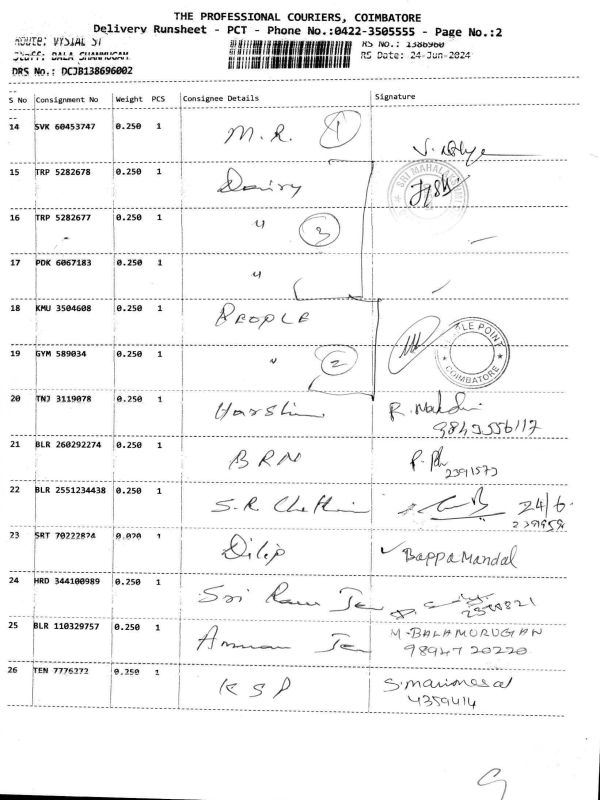 THE PROFESSIONAL COURIERS, COIMBATORE
Delivery Runsheet - PCT - Phone No.:0422-3505555 - Page No.:2
Route: VYSIAL ST
RS No.: 1386960
Staff: BALA SHANMUGAM
RS Date: 24-Jun-2024
DRS No.: DCJB138696002
S No Consignment No Weight PCS Consignee Details Signature
14 SVK 60453747 0.250 1 M.R. 1
15 TRP 5282678 0.250 1 Dairy SRI MAHAL
16 TRP 5282677 0.250 1 " 3
17 PDK 6067183 0.250 1 "
18 KMU 3504608 0.250 1 PEOPLE POINT COIMBATORE
19 GYM 589034 0.250 1 " 2
20 TNJ 3119078 0.250 1 Harshim R.
9843556117
21 BLR 260292274 0.250 1 BRN P.
2391573
22 BLR 2551234438 0.250 1 S.R. 24/6
23 SRT 70222824 0.020 1 Dilip Bappa Mandal
24 HRD 344100989 0.250 1 Sri Ram Jew
25 BLR 110329757 0.250 1 Amman Jew M.BALAMURUGAN
98947 20220
26 TEN 7776272 0.250 1 KSP
4359414